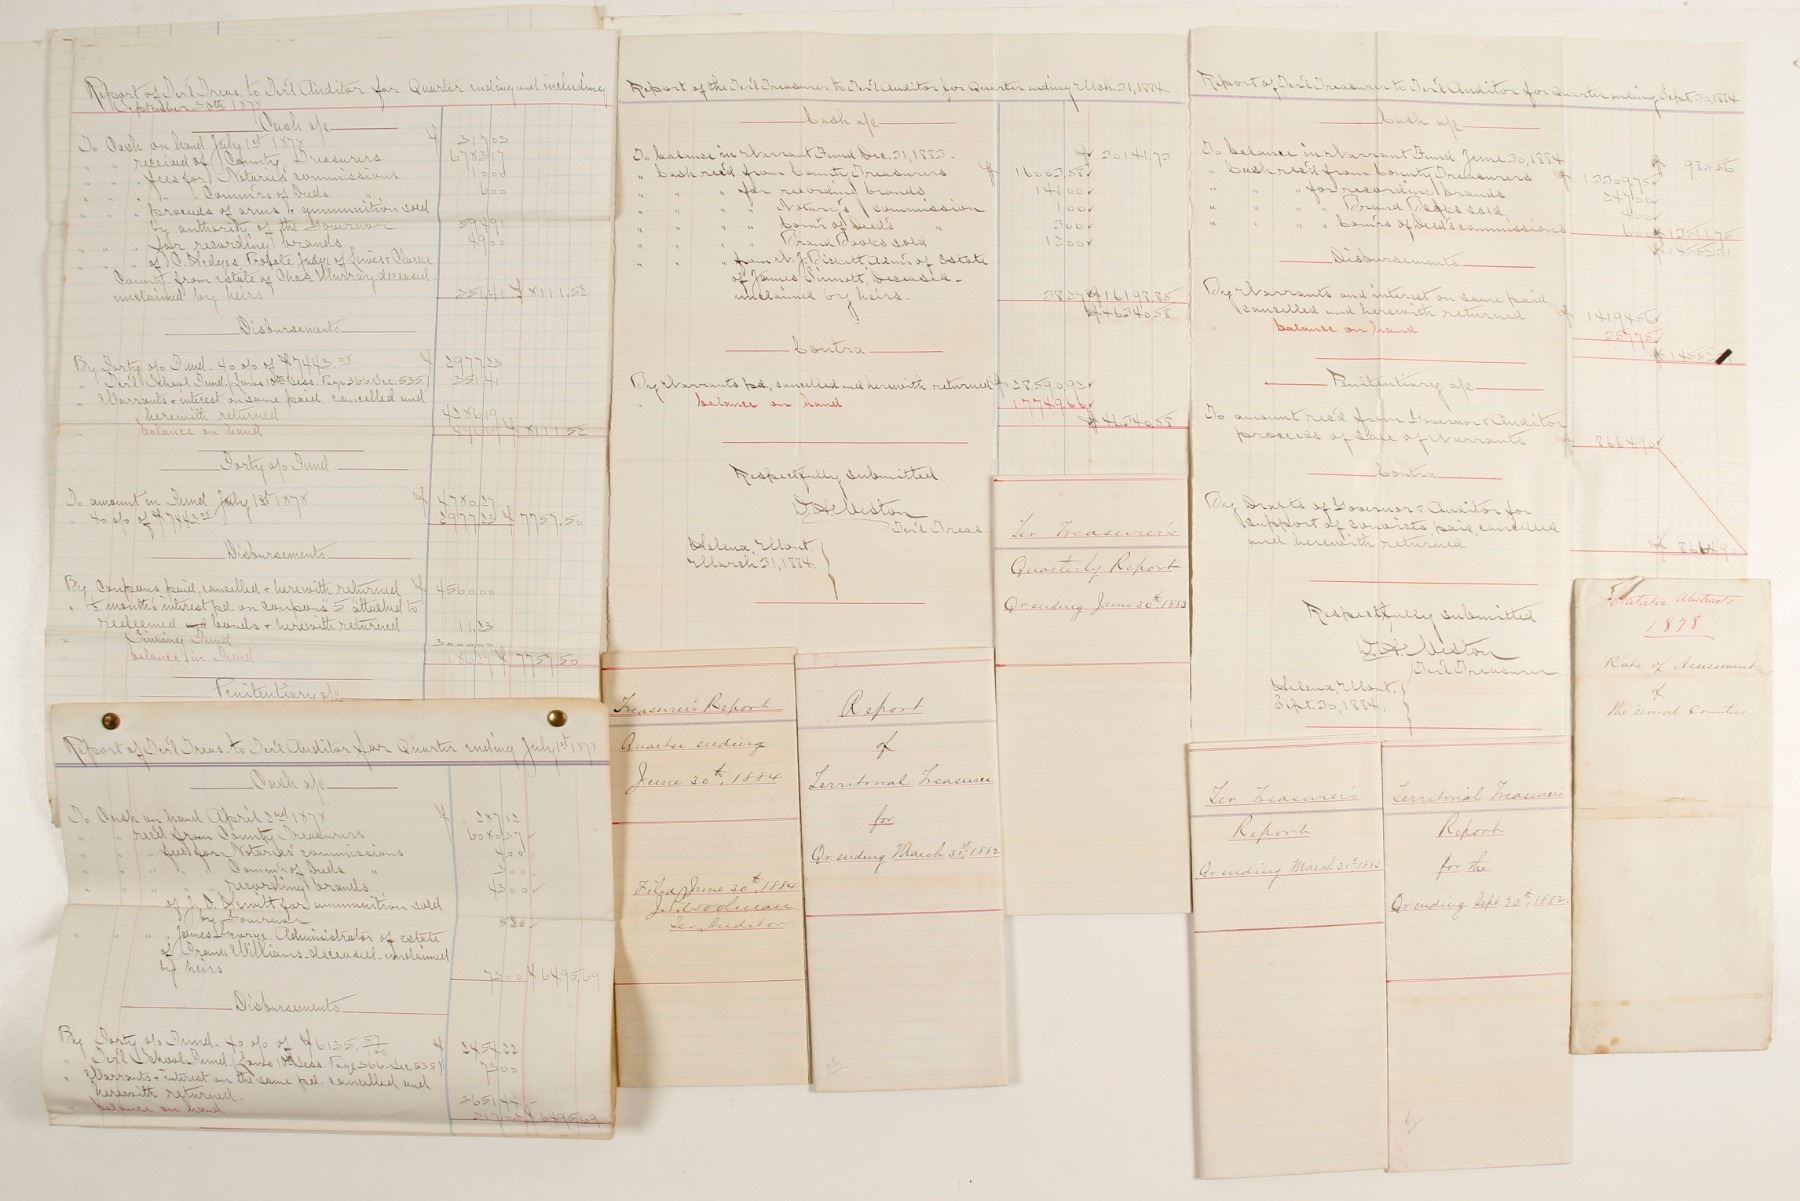 Report of Ter'l Treas. to Ter'l Auditor for Quarter ending and including
September 30th 1878
Cash a/c
To Cash on hand July 1st 1878 $ 317.03
" " received of County Treasurers 6783.17
" " " fees for Notaries commissions 10.00
" " " " " Comm'rs of Deeds " 6.00
" " " proceeds of arms & ammunition sold
by authority of the Governor 594.91
" " " for recording brands 49.00
" " " of C. Hedges, Probate Judge of Lewis & Clarke
County from estate of Chas. Murray deceased
unclaimed by heirs 351.41 $ 8111.52
Disbursements
By Forty o/o Fund 40 o/o of $7443.08 $ 2977.23
" Ter'l School Fund (Laws 10th Sess. Page 366. Sec. 535) 351.41
" Warrants & interest on same paid, cancelled and
herewith returned 4286.19
balance on hand $ 8111.52
Forty o/o Fund
To amount in Fund July 1st 1878 $ 4780.27
" 40 o/o of $7443.08 2977.23 $ 7757.50
Disbursements
By Coupons paid, cancelled & herewith returned $ 4560.00
" ½ month's interest pd. on coupons "5" attached to
redeemed bonds & herewith returned 11.23
" Sinking Fund 3000.00
" balance in Fund 186.27 $ 7757.50
Penitentiary a/c
Report of Ter'l Treas. to Ter'l Auditor for Quarter ending July 1st 1878
Cash a/c
To Cash on hand April 2nd 1878 $ 287.12
" " rec'd from County Treasurers 6080.37
" " " fees for Notaries' commissions 4.00
" " " " " Comm'rs of Deeds " 3.00
" " " " " recording brands 43.00
of J. D. Hewitt for ammunition sold
by Governor 5.20
" " " " James George Administrator of estate
of Frank Williams deceased unclaimed
by heirs 73.00 $ 6495.69
Disbursements
By Forty o/o Fund 40 o/o of $6135.57/100 $ 2454.22
" Ter'l School Fund (Laws 10th Sess. Page 366. Sec. 535) 73.00
" Warrants & interest on the same pd. cancelled and
herewith returned 3651.44
" balance on hand 317.03 $ 6495.69
Report of the Ter'l Treasurer to Ter'l Auditor for Quarter ending Mch. 31, 1884
Cash a/c
To balance in Warrant Fund Dec. 31, 1883. $ 30141.73
" Cash rec'd from County Treasurers $ 16003.58
" " " for recording brands 141.00
" " " " Notary's commission 1.00
" " " " Com'r of Deed's " 3.00
" " " " Brand Books sold 12.00
" " " from N. J. Bielenberg Adm'r of Estate
of James Sinnott, Deceased
unclaimed by heirs. 38.27 $ 16198.85
$ 46340.58
Contra
By Warrants pd., cancelled and herewith returned $ 28590.92
" balance on hand 17749.66
$ 46340.58
Respectfully Submitted
D. H. Weston
Ter'l Treas
Helena, Mont
March 31, 1884
Ter Treasurer's
Quarterly Report
Qr ending June 30th, 1883
Treasurer's Report
Quarter ending
June 30th, 1884
Filed June 30th, 1884
J. P. Woolman
Ter. Auditor
Report
of
Territorial Treasurer
for
Qr ending March 31st, 1882
Report of Ter'l Treasurer to Ter'l Auditor for Quarter ending Sept. 30, 1884
Cash a/c
To balance in Warrant Fund June 30, 1884 $ 980.56
" Cash rec'd from County Treasurers $ 13309.75
" " " for recording brands
" " " " Brand Books sold 4.00
" " " " Com'rs of Deed's commissions 6.00
Disbursements
By Warrants and interest on same paid,
cancelled and herewith returned $ 14194.56
" balance on hand 357.75
Penitentiary a/c
To amount rec'd from Governor & Auditor
proceeds of sale of Warrants $ 8664.90
Contra
By Drafts of Governor & Auditor for
support of convicts, paid, cancelled
and herewith returned $ 8664.90
Respectfully Submitted
D. H. Weston
Ter'l Treasurer
Helena, Mont.
Sept. 30, 1884.
Ter Treasurer's
Report
Qr ending March 31st, 1883
Territorial Treasurer's
Report
for the
Qr ending Sept. 30th, 1882.
Abstracts
1878
Rate of Assessment
of
the several Counties